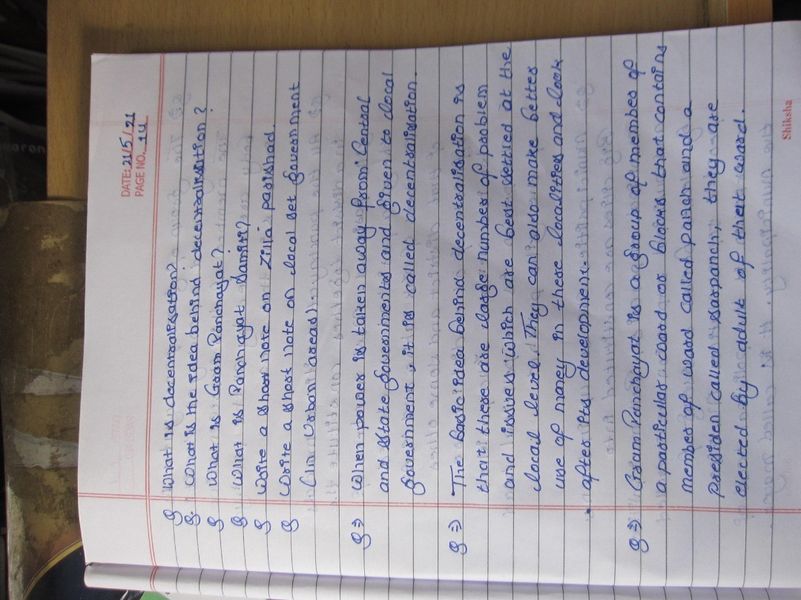 DATE: 21/5/21
PAGE NO. 14
Q What is decentralisation?
Q. What is the idea behind decentralisation?
Q What is Gram Panchayat?
Q What is Panchayat Samiti?
Q Write a short note on Zilla parishad
Q Write a short note on local set government
(in Urban areas).
Q ⇒ When power is taken away from Central
and state governments and given to local
government, it is called decentralisation.
Q ⇒ The basic idea behind decentralisation is
that there are large number of problem
and issues which are best settled at the
local level. They can also make better
use of money in these localities and look
after its development.
Q ⇒ Gram Panchayat is a group of member of
a particular ward or blocks that contains
member of ward called panch and a
presiden called sarpanch, they are
elected by adult of that ward.
Shiksha